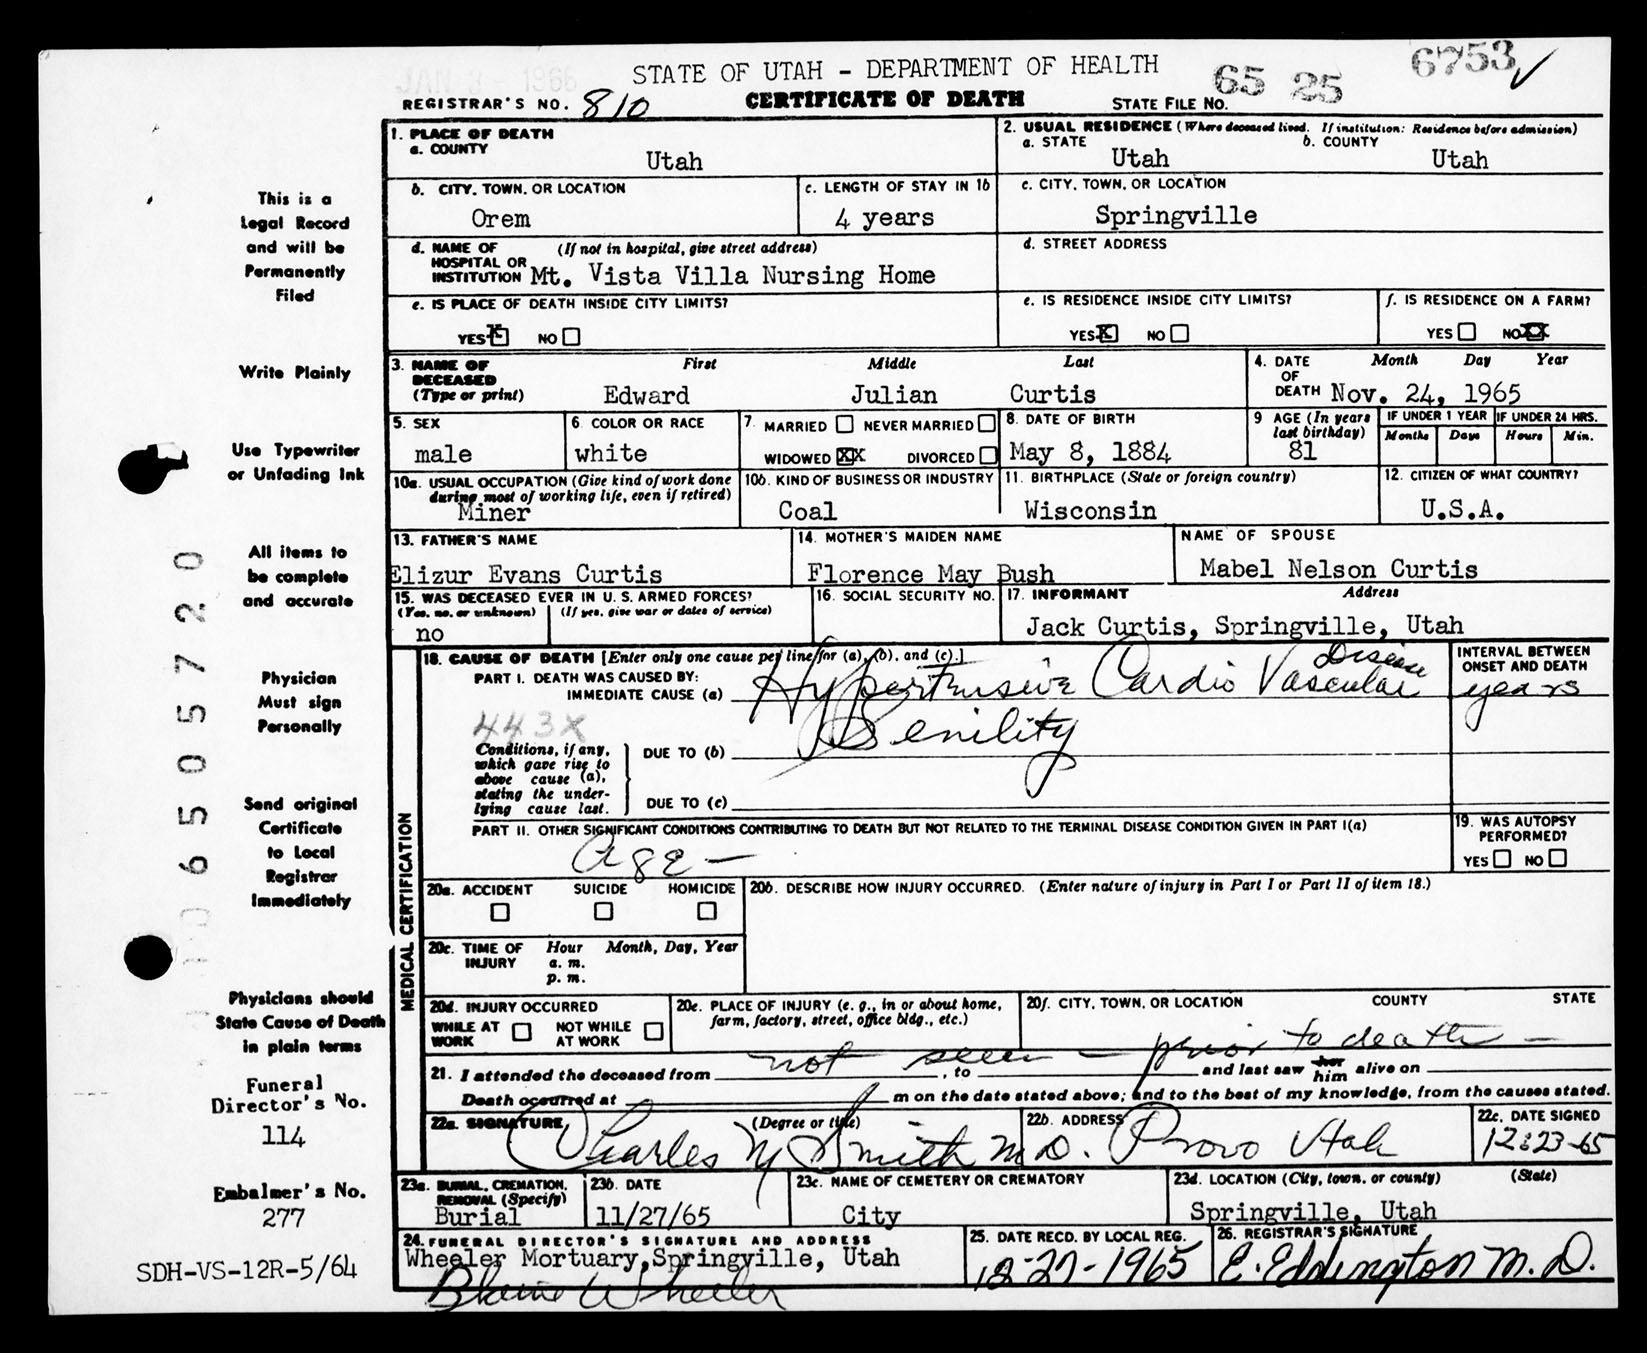 JAN 3 - 1966
STATE OF UTAH - DEPARTMENT OF HEALTH
6753 ✓
REGISTRAR'S NO. 810
CERTIFICATE OF DEATH
STATE FILE NO. 65 25
1. PLACE OF DEATH
a. COUNTY
Utah
2. USUAL RESIDENCE (Where deceased lived. If institution: Residence before admission)
a. STATE Utah
b. COUNTY Utah
b. CITY, TOWN, OR LOCATION
Orem
c. LENGTH OF STAY IN 1b
4 years
c. CITY, TOWN, OR LOCATION
Springville
d. NAME OF (If not in hospital, give street address)
HOSPITAL OR
INSTITUTION Mt. Vista Villa Nursing Home
d. STREET ADDRESS
e. IS PLACE OF DEATH INSIDE CITY LIMITS?
YES X NO
e. IS RESIDENCE INSIDE CITY LIMITS?
YES X NO
f. IS RESIDENCE ON A FARM?
YES NO XX
3. NAME OF DECEASED (Type or print)
First Middle Last
Edward Julian Curtis
4. DATE OF DEATH
Month Day Year
Nov. 24, 1965
5. SEX
male
6. COLOR OR RACE
white
7. MARRIED NEVER MARRIED
WIDOWED XX DIVORCED
8. DATE OF BIRTH
May 8, 1884
9 AGE (In years last birthday)
81
IF UNDER 1 YEAR
Months Days
IF UNDER 24 HRS.
Hours Min.
10a. USUAL OCCUPATION (Give kind of work done during most of working life, even if retired)
Miner
10b. KIND OF BUSINESS OR INDUSTRY
Coal
11. BIRTHPLACE (State or foreign country)
Wisconsin
12. CITIZEN OF WHAT COUNTRY?
U.S.A.
13. FATHER'S NAME
Elizur Evans Curtis
14. MOTHER'S MAIDEN NAME
Florence May Bush
NAME OF SPOUSE
Mabel Nelson Curtis
15. WAS DECEASED EVER IN U. S. ARMED FORCES?
(Yes, no, or unknown) (If yes, give war or dates of service)
no
16. SOCIAL SECURITY NO.
17. INFORMANT Address
Jack Curtis, Springville, Utah
MEDICAL CERTIFICATION
18. CAUSE OF DEATH [Enter only one cause per line for (a), (b), and (c).]
PART I. DEATH WAS CAUSED BY:
IMMEDIATE CAUSE (a) Hypertensive Cardio Vascular Disease
INTERVAL BETWEEN ONSET AND DEATH
years
443X
Conditions, if any, which gave rise to above cause (a), stating the underlying cause last.
DUE TO (b) Senility
DUE TO (c)
PART II. OTHER SIGNIFICANT CONDITIONS CONTRIBUTING TO DEATH BUT NOT RELATED TO THE TERMINAL DISEASE CONDITION GIVEN IN PART I(a)
Age -
19. WAS AUTOPSY PERFORMED?
YES NO
20a. ACCIDENT SUICIDE HOMICIDE
20b. DESCRIBE HOW INJURY OCCURRED. (Enter nature of injury in Part I or Part II of item 18.)
20c. TIME OF INJURY
Hour Month, Day, Year
a. m.
p. m.
20d. INJURY OCCURRED
WHILE AT WORK NOT WHILE AT WORK
20e. PLACE OF INJURY (e. g., in or about home, farm, factory, street, office bldg., etc.)
20f. CITY, TOWN, OR LOCATION COUNTY STATE
not seen - prior to death -
21. I attended the deceased from , to and last saw her him alive on
Death occurred at m on the date stated above; and to the best of my knowledge, from the causes stated.
22a. SIGNATURE (Degree or title)
Charles M Smith M.D.
22b. ADDRESS
Provo Utah
22c. DATE SIGNED
12-23-65
23a. BURIAL, CREMATION, REMOVAL (Specify)
Burial
23b. DATE
11/27/65
23c. NAME OF CEMETERY OR CREMATORY
City
23d. LOCATION (City, town, or county) (State)
Springville, Utah
24. FUNERAL DIRECTOR'S SIGNATURE AND ADDRESS
Wheeler Mortuary, Springville, Utah
Blaine Wheeler
25. DATE RECD. BY LOCAL REG.
12-27-1965
26. REGISTRAR'S SIGNATURE
E. Eddington M.D.
This is a
Legal Record
and will be
Permanently
Filed
Write Plainly
Use Typewriter
or Unfading Ink
All items to
be complete
and accurate
Physician
Must sign
Personally
Send original
Certificate
to Local
Registrar
Immediately
Physicians should
State Cause of Death
in plain terms
Funeral
Director's No.
114
Embalmer's No.
277
SDH-VS-12R-5/64
06505720